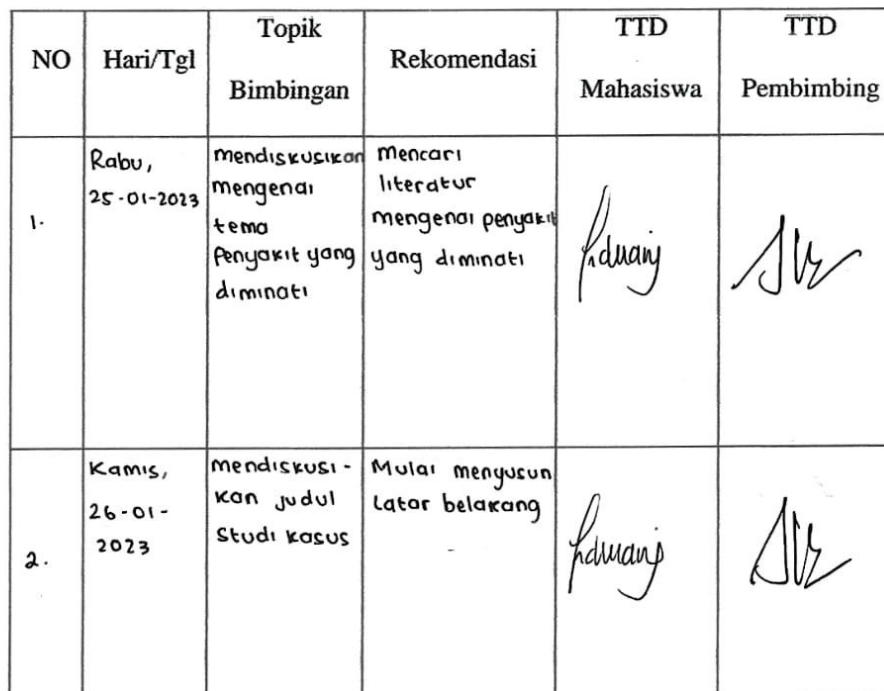 NO
Hari/Tgl
Topik
Bimbingan
Rekomendasi
TTD
Mahasiswa
TTD
Pembimbing
1.
Rabu,
25-01-2023
mendiskusikan
mengenai
tema
Penyakit yang
diminati
Mencari
literatur
mengenai penyakit
yang diminati
2.
Kamis,
26-01-
2023
mendiskusi-
kan judul
Studi kasus
Mulai menyusun
Latar belakang